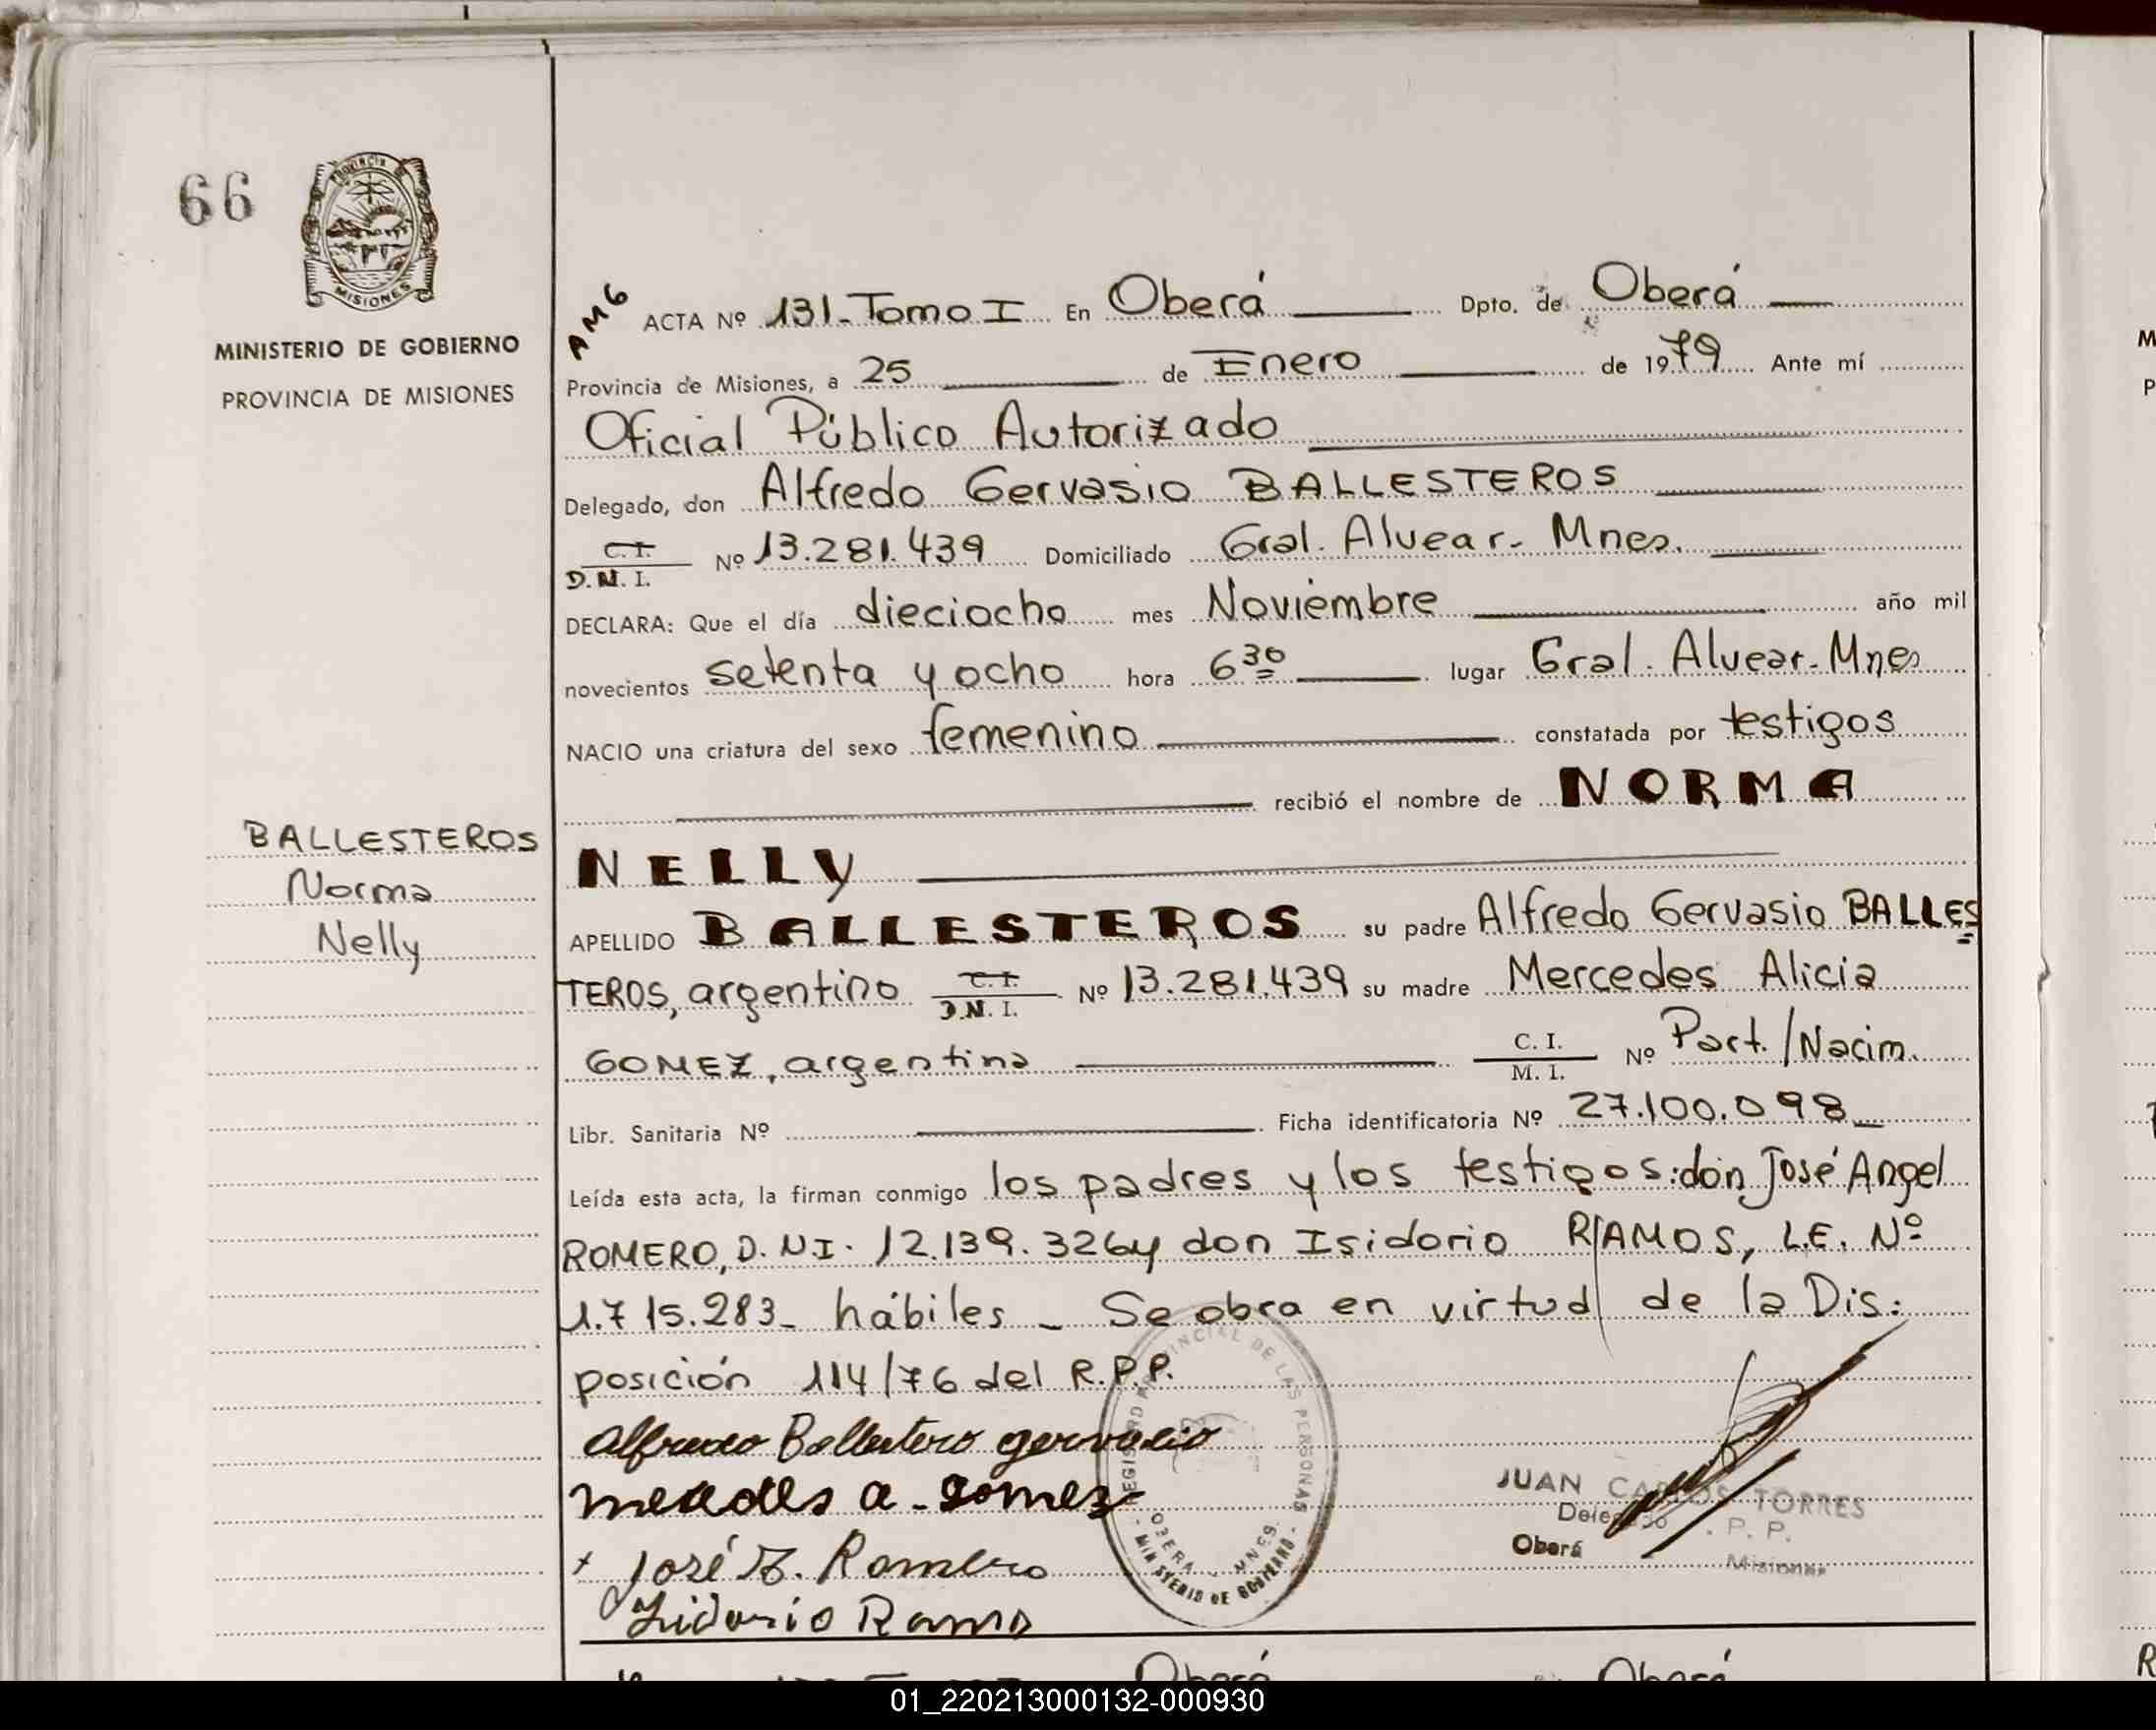 66
PROVINCIA DE
MISIONES
MINISTERIO DE GOBIERNO
PROVINCIA DE MISIONES
AMG
ACTA Nº 131-Tomo I En Oberá Dpto. de Oberá
Provincia de Misiones, a 25 de Enero de 1979 Ante mí
Oficial Público Autorizado
Delegado, don Alfredo Gervasio BALLESTEROS
C.I.
D.N.I. Nº 13.281.439 Domiciliado Gral. Alvear- Mnes.
DECLARA: Que el día dieciocho mes Noviembre año mil
novecientos setenta y ocho hora 6 30 lugar Gral. Alvear-Mnes
NACIO una criatura del sexo femenino constatada por testigos
recibió el nombre de NORMA
NELLY
BALLESTEROS
Norma
Nelly
APELLIDO BALLESTEROS su padre Alfredo Gervasio BALLES
TEROS, argentino C.I. D.N.I. Nº 13.281.439 su madre Mercedes Alicia
GOMEZ, argentina C. I. M. I. Nº Part./Nacim.
Libr. Sanitaria Nº Ficha identificatoria Nº 27.100.098
Leída esta acta, la firman conmigo los padres y los testigos: don José Angel
ROMERO, D.N.I. 12.139.326 y don Isidorio RAMOS, L.E. Nº
1.715.283- hábiles - Se obra en virtud de la Dis:
posición 114/76 del R.P.P.
Alfredo Ballestero gervasio
mercedes a. gomez
José A. Romero
Isidorio Ramo
REGISTRO PROVINCIAL DE LAS PERSONAS
OBERA - MNES.
- MINISTERIO DE GOBIERNO -
JUAN CARLOS TORRES
Delegado R. P. P.
Oberá Misiones
Oberá Oberá
01_220213000132-000930